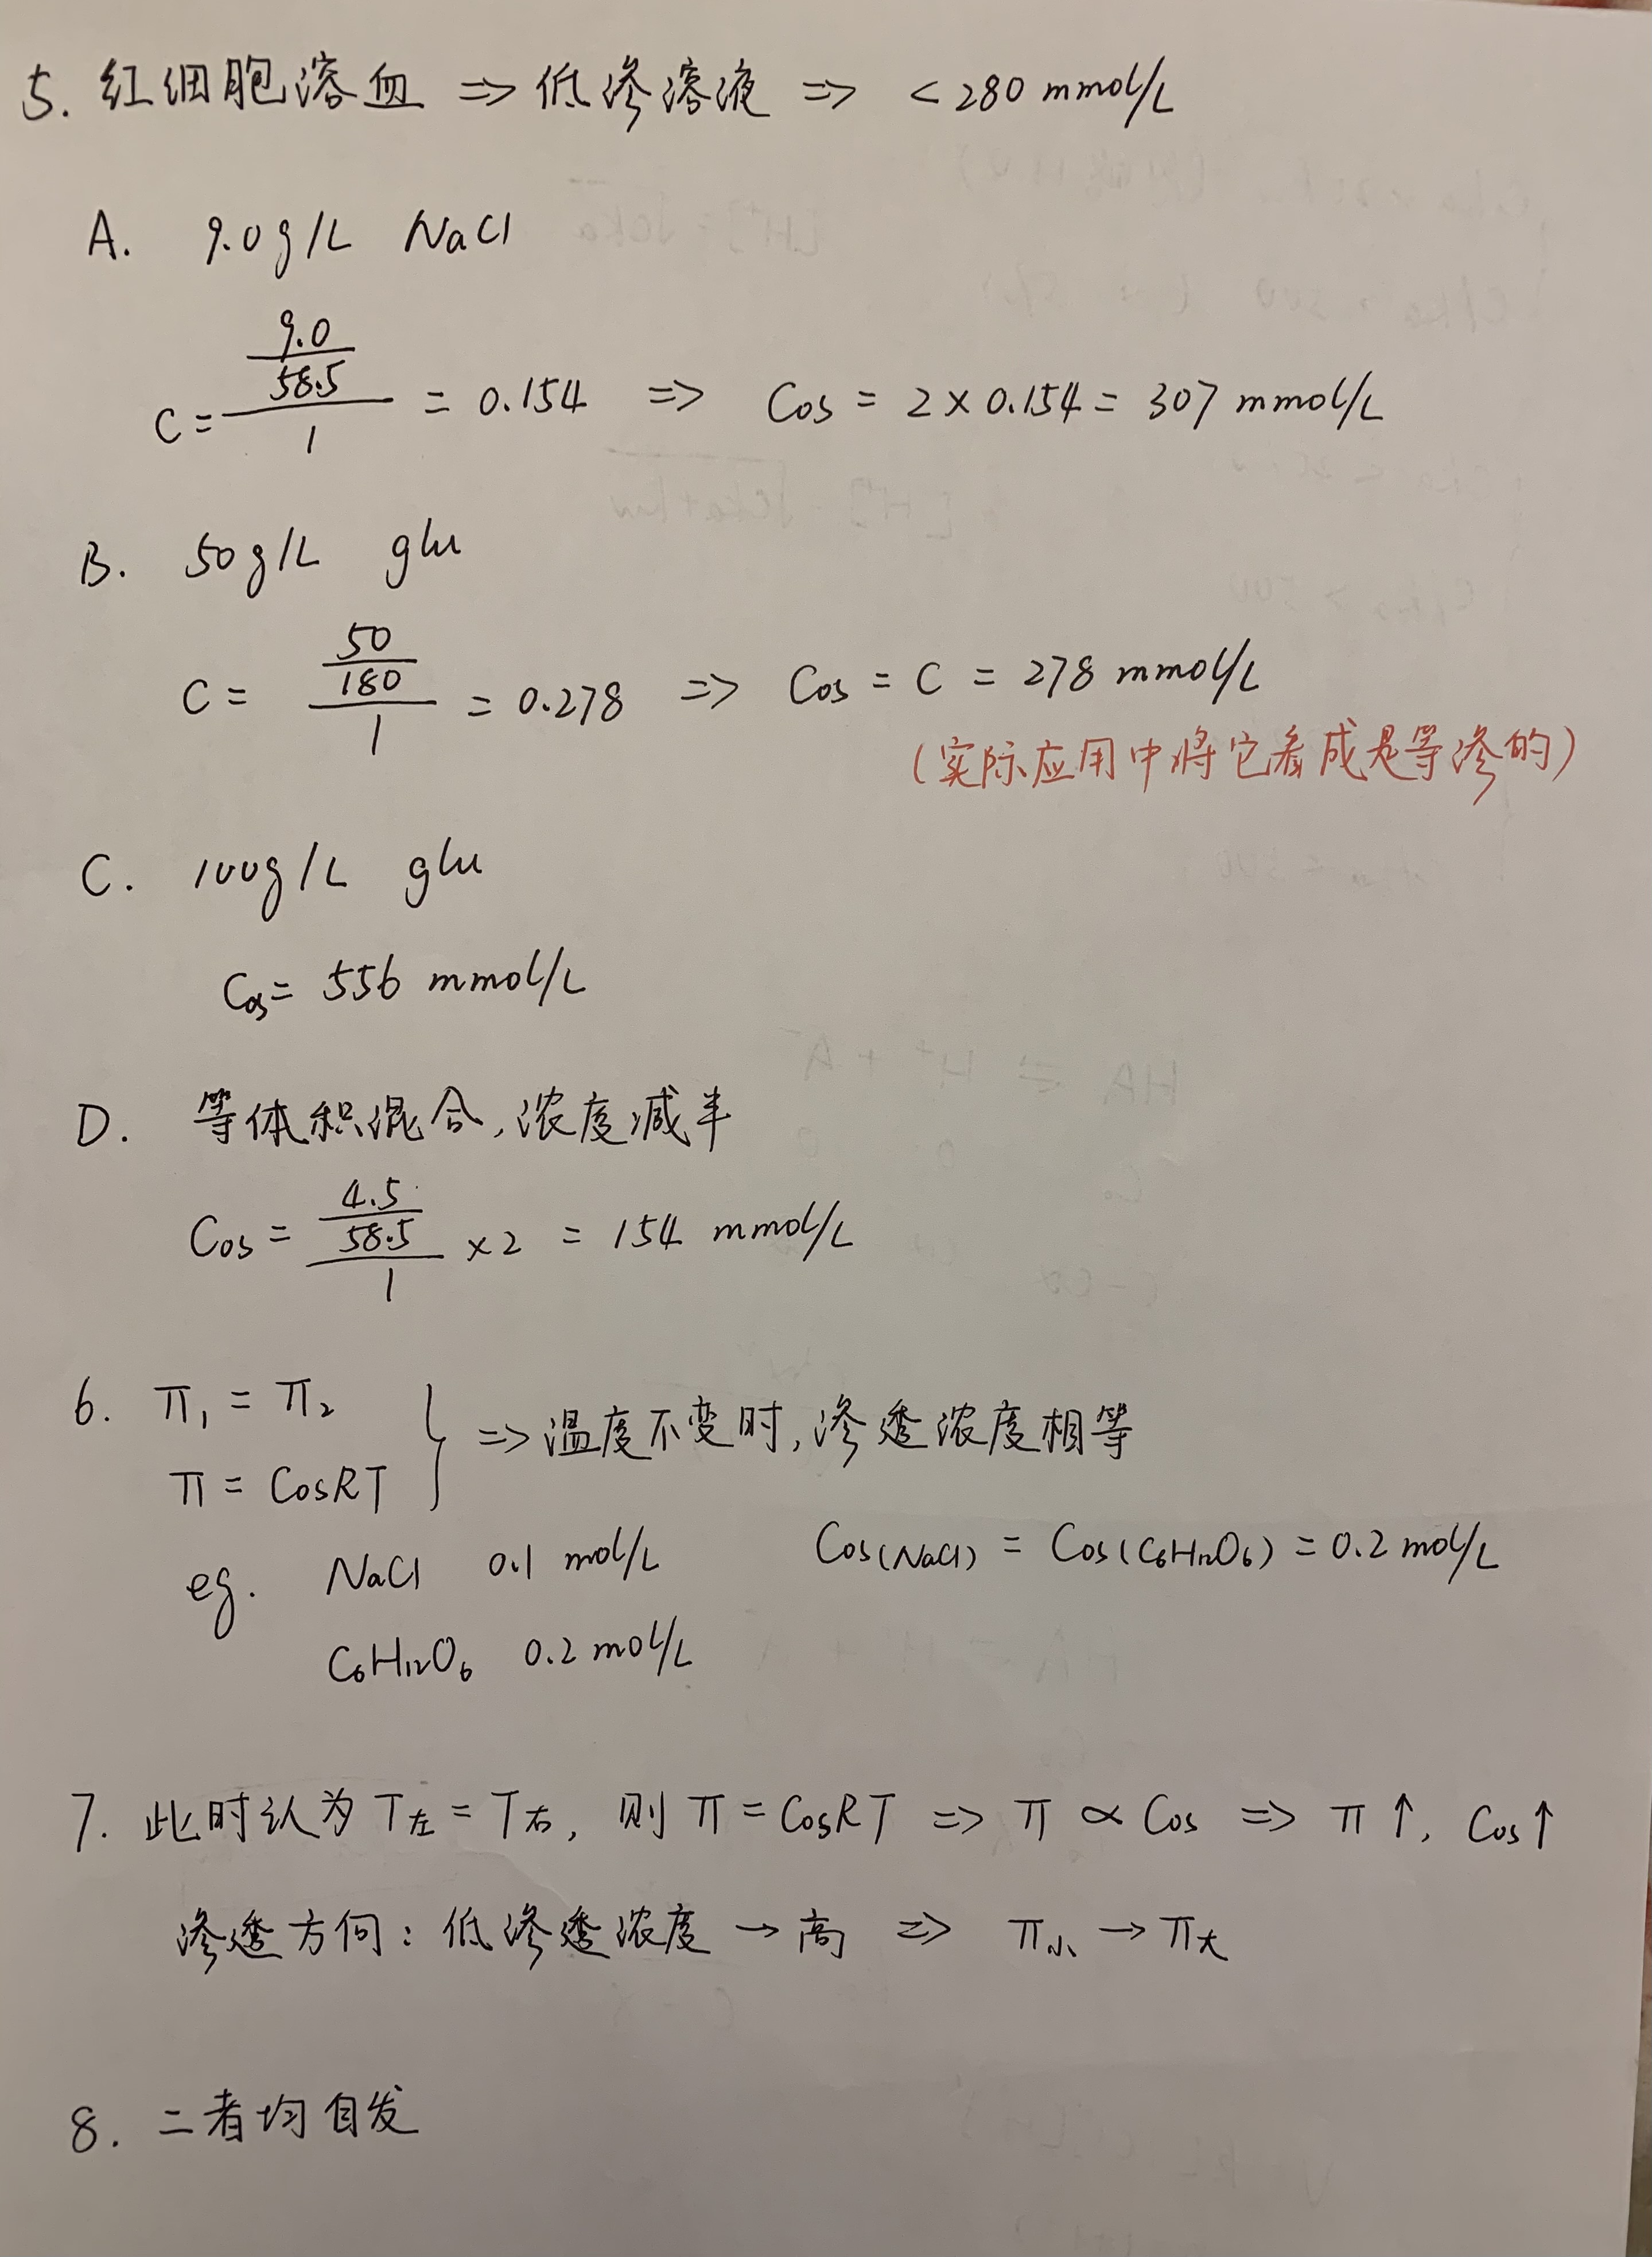 5. 红细胞溶血 => 低渗溶液 => < 280 mmol/L
A. 9.0g/L NaCl
C = 9.0/58.5/1 = 0.154 => Cos = 2 × 0.154 = 307 mmol/L
B. 50g/L glu
C = 50/180/1 = 0.278 => Cos = C = 278 mmol/L
(实际应用中将它看成是等渗的)
C. 100g/L glu
Cos = 556 mmol/L
D. 等体积混合,浓度减半
Cos = 4.5/58.5/1 × 2 = 154 mmol/L
6. π₁ = π₂
π = CosRT } => 温度不变时,渗透浓度相等
eg. NaCl 0.1 mol/L Cos(NaCl) = Cos(C₆H₁₂O₆) = 0.2 mol/L
C₆H₁₂O₆ 0.2 mol/L
7. 此时认为 T左 = T右, 则 π = CosRT => π ∝ Cos => π ↑, Cos ↑
渗透方向: 低渗透浓度 → 高 => π小 → π大
8. 二者均自发